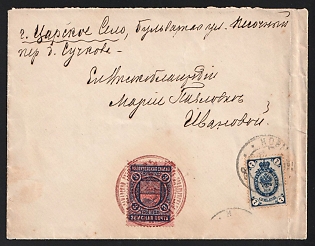 г. Царское Село, Бульварная ул. Песочный
пер д. Сучкова -
Ея Высокоблагородiю
Марiи Павловнѣ
Ивановой.
ЗЕМСКАЯ ПОЧТА